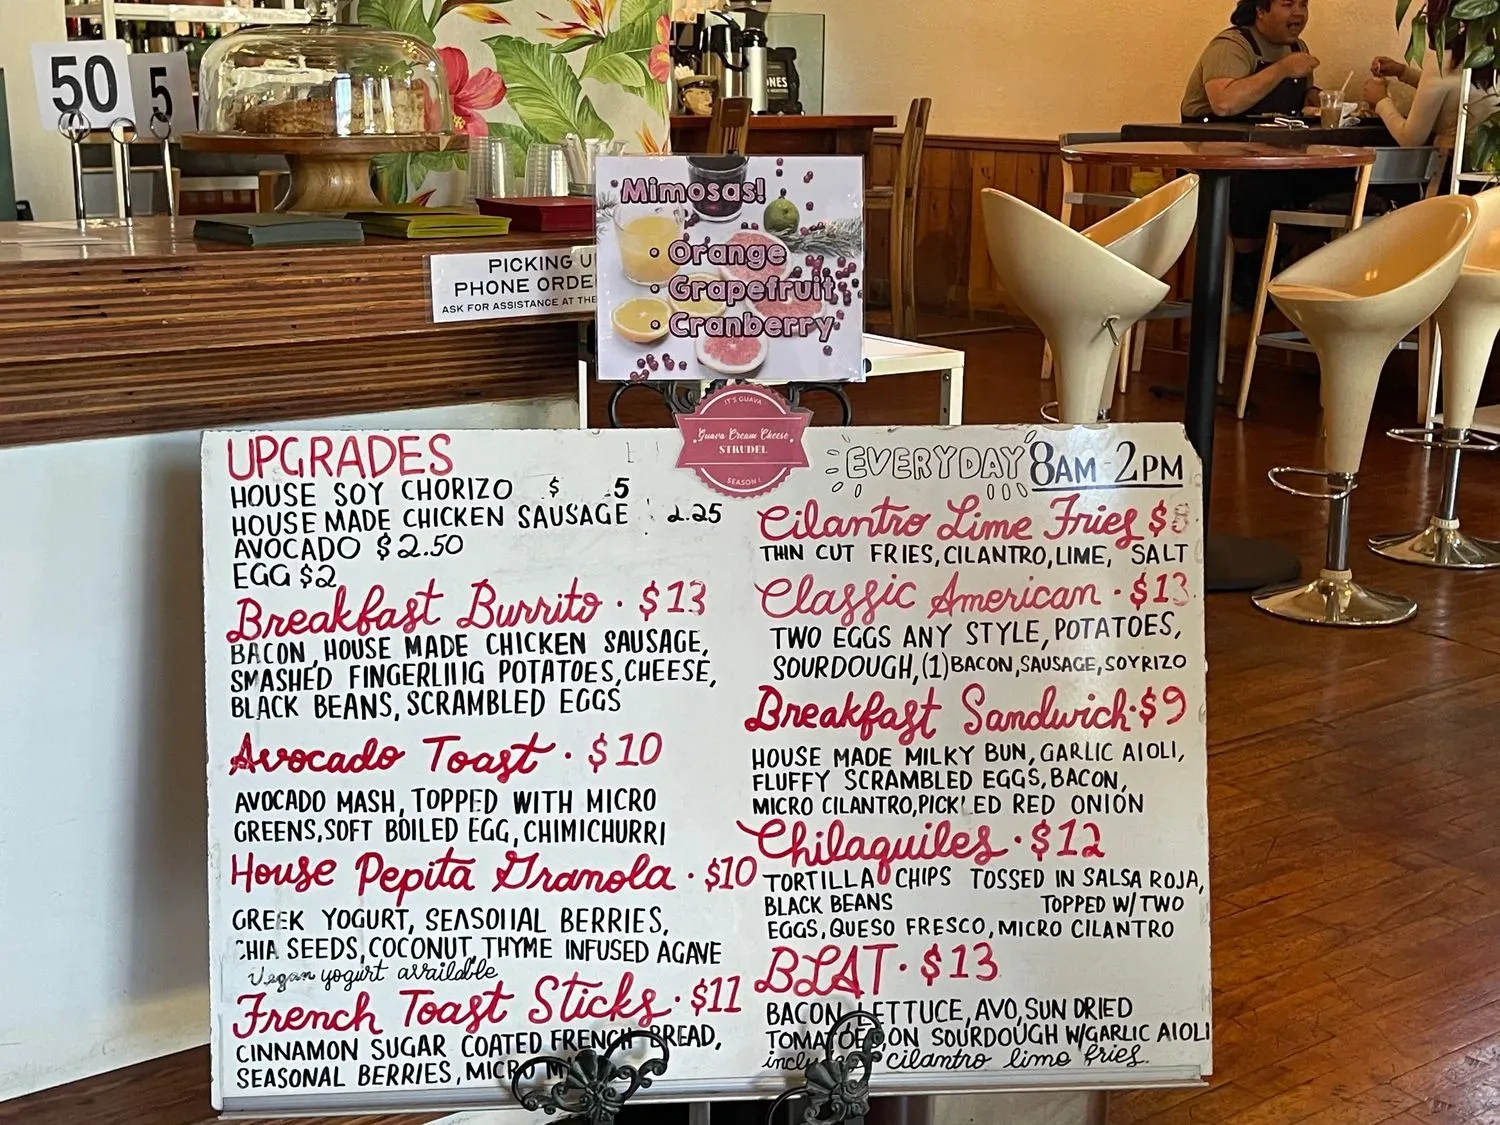 50
5
PICKING U
PHONE ORDE
ASK FOR ASSISTANCE AT THE
Mimosas!
• Orange
• Grapefruit
• Cranberry
IT'S GUAVA
Guava Cream Cheese
STRUDEL
SEASON!
UPGRADES
HOUSE SOY CHORIZO $ 5
HOUSE MADE CHICKEN SAUSAGE 2.25
AVOCADO $2.50
EGG $2
Breakfast Burrito · $13
BACON, HOUSE MADE CHICKEN SAUSAGE,
SMASHED FINGERLING POTATOES, CHEESE,
BLACK BEANS, SCRAMBLED EGGS
Avocado Toast · $10
AVOCADO MASH, TOPPED WITH MICRO
GREENS, SOFT BOILED EGG, CHIMICHURRI
House Pepita Granola · $10
GREEK YOGURT, SEASONAL BERRIES,
CHIA SEEDS, COCONUT, THYME INFUSED AGAVE
Vegan yogurt available
French Toast Sticks · $11
CINNAMON SUGAR COATED FRENCH BREAD,
SEASONAL BERRIES, MICRO
EVERYDAY 8AM - 2PM
Cilantro Lime Fries $8
THIN CUT FRIES, CILANTRO, LIME, SALT
Classic American · $13
TWO EGGS ANY STYLE, POTATOES,
SOURDOUGH, (1) BACON, SAUSAGE, SOYRIZO
Breakfast Sandwich · $9
HOUSE MADE MILKY BUN, GARLIC AIOLI,
FLUFFY SCRAMBLED EGGS, BACON,
MICRO CILANTRO, PICKLED RED ONION
Chilaquiles · $12
TORTILLA CHIPS TOSSED IN SALSA ROJA,
BLACK BEANS TOPPED W/ TWO
EGGS, QUESO FRESCO, MICRO CILANTRO
BLAT · $13
BACON, LETTUCE, AVO, SUN DRIED
TOMATOES, ON SOURDOUGH W/GARLIC AIOLI
cilantro lime fries.